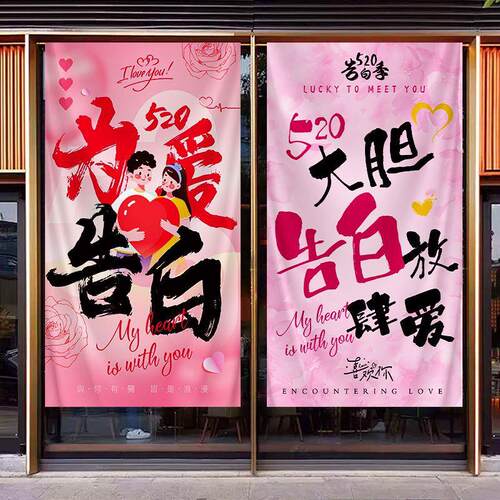 I love you!
520
为爱
告白
My heart
is with you
與·你·有·關 皆·是·浪·漫
520
告白季
LUCKY TO MEET YOU
520
大胆
告白放
肆爱
My heart
is with you
喜欢你
ENCOUNTERING LOVE